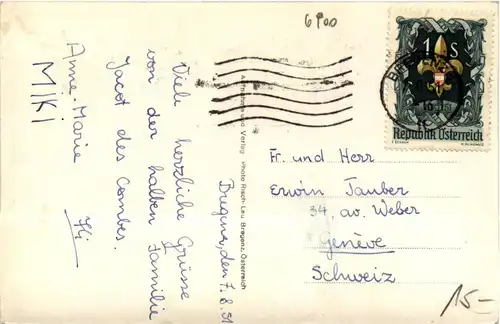 6900
Bregenz, den 7.8.51
Viele herzliche Grüsse
von der halben Familie
Jacot des Combes.
Anne-Marie
MIKI
Photo Risch-Lau Bregenz, Österreich
1 S
Republik Österreich
Fr. und Herr
Erwin Tauber
34, av. Weber
Genève
Schweiz
15-